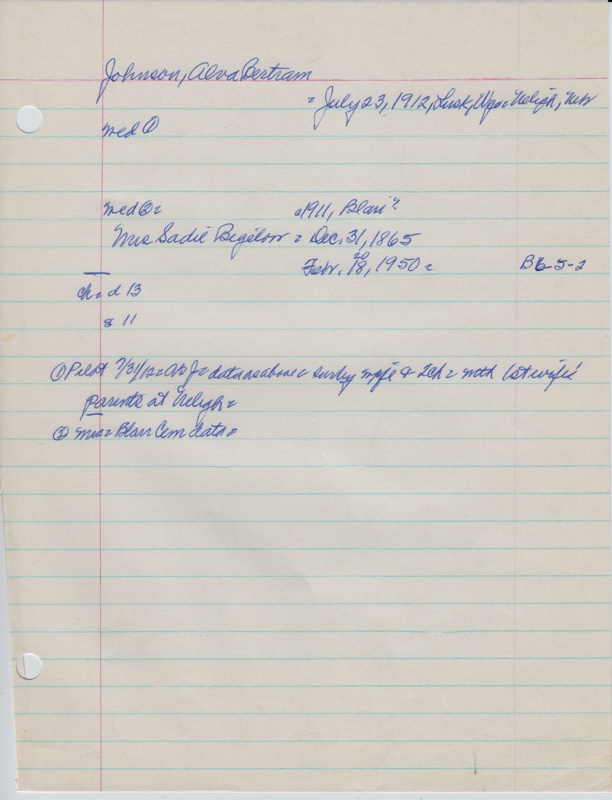 Johnson, Alva Bertram
= July 23, 1912, Lusk, Wyo = Neligh, Neb
med ①
med ② = 1911, Blair?
Mrs Sadie Bigelow = Dec. 31, 1865
20
Febr. 18, 1950 = B6-5-2
ch = d 13
s 11
① Pilot 7/31/12 = ABJ = data as above = surv by wife & 2 ch = with 1st wife's
parents at Neligh =
② Mrs = Blair Cem data =